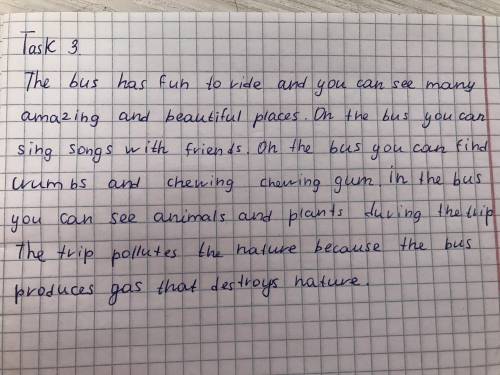 Task 3.
The bus has fun to ride and you can see many
amazing and beautiful places. On the bus you can
sing songs with friends. On the bus you can find
crumbs and chewing chewing gum. in the bus
you can see animals and plants during the trip
The trip pollutes the nature because the bus
produces gas that destroys nature.